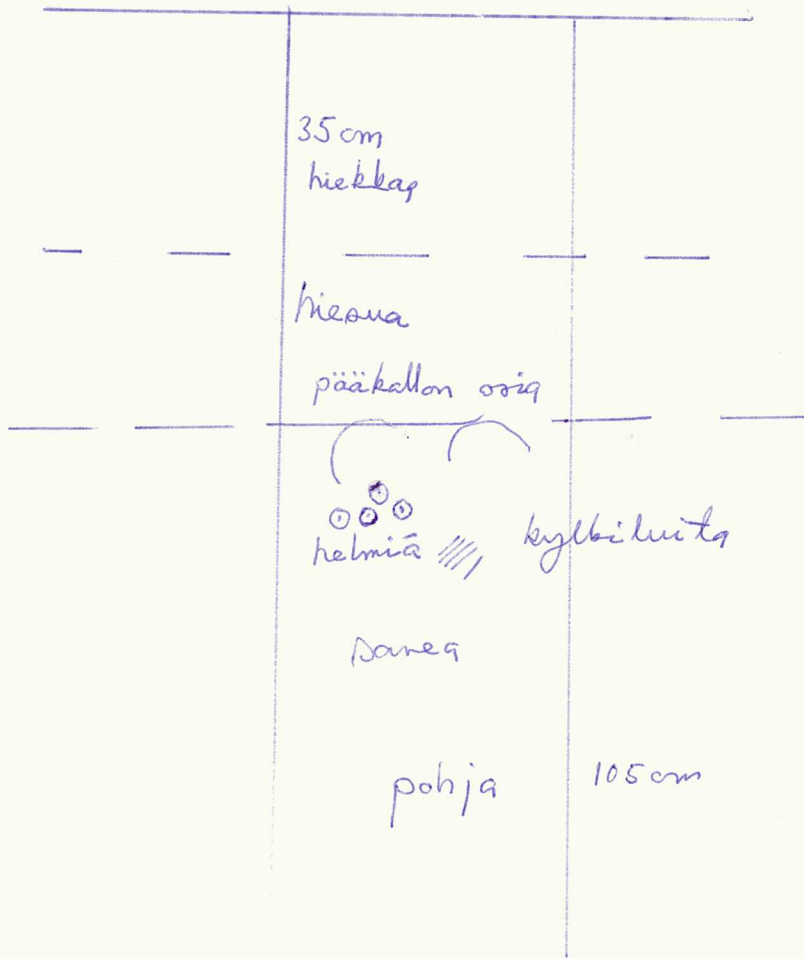 35 cm
hiekkaa
hiesua
pääkallon osia
helmiä
kylkiluita
savea
pohja
105 cm